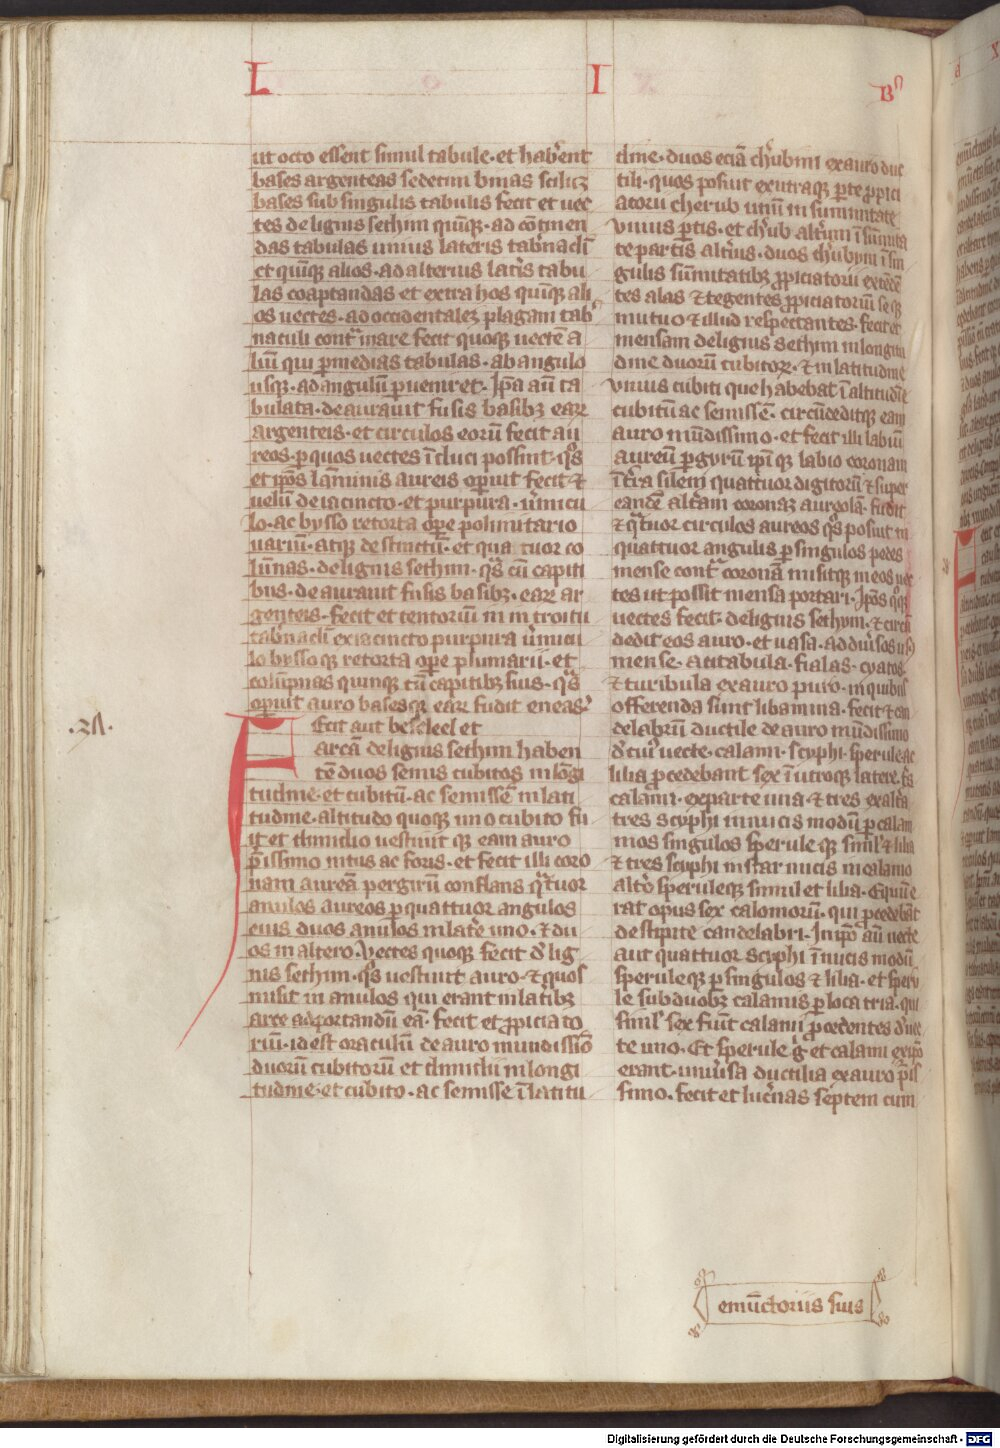 L I Bͬ
ut octo essent simul tabule · et hab̾ent
bases argenteas sedecim binas scilicꝫ
bases sub singulis tabulis fecit et uec
tes de lignis sethim quīqꝫ · ad cōtinen
das tabulas unius lateris tab̾nacli
et quīqꝫ alios · ad alterius lat̾is tabu
las coaptandas et extra hos quīqꝫ ali
os uectes · ad occidentalē plagam tab̾
naculi contra mare fecit quoqꝫ uectē a
liū qui ꝑ medias tabulas · ab angulo
usqꝫ · ad angulū ꝑueniret · Ip̄a aūt ta
bulata · deaurauit fusis basibꝫ eaꝝ
argenteis · et circulos eorū fecit au
reos · ꝑ quos uectes īduci possint · qͦs
et ip̄os lāminis aureis oꝑuit fecit ⁊
uelū de iacincto · et purpura · u̾micu
lo · ac bysso retorta oꝑe polimitario
uariū · atqꝫ destinctū · et quatuor co
lūnas · de lignis sethim · qͦs cū capiti
bus · deaurauit fusis basibꝫ · eaꝝ ar
genteis · fecit et tentoriū in introitu
tab̾nacli ex iacincto purpura u̾micu
lo byssoqꝫ retorta oꝑe plumarii · et
colūpnas quinqꝫ cū capitibꝫ suis · qͦs
oꝑuit auro basesqꝫ eaꝝ fudit eneas ·
Fecit aut beseleel et
arcā de lignis sethim haben
tē duos semis cubitos in lōgi
tudine · et cubitū · ac semissē in lati
tudine · altitudo quoqꝫ uno cubito fu
it et dimidio uestiuit qꝫ eam auro
p̄issimo intus ac foris · et fecit illi coro
nam aureā per girū conflans qͣtuor
anulos aureos ꝑ quattuor angulos
eius duos anulos in lat̾e uno · ⁊ du
os in altero · Vectes quoqꝫ fecit d̾ lig
nis sethim · qͦs uestiuit auro · ⁊ quos
misit in anulos qui erant in latibꝫ
arce ad portandū eā · fecit et ꝓpiciato
riū · id est oraculū de auro mundissīo
duorū cubitorū et dimidii in longi
tudine · et cubito · ac semisse ī latitu
dine · duos eciā ch̾ubini ex auro duc
tili · quos posuit ex utraqꝫ ꝑte ꝓpici
atorii cherub unū in summitate
vnius ꝑtis · et ch̾ub alt̾um ī sūmita
te partis alt̾ius · duos ch̾ubyn ī sin
gulis sūmitatibꝫ ꝓpiciatorii extēdē
tes alas ⁊ tegentes ꝓpiciatoriū se qꝫ
mutuo ⁊ illud respectantes · fecit et
mensam de lignis sethim in longitu
dine duorū cubitoꝝ · ⁊ in latitudine
vnius cubiti que habebat ī altitudīe
cubitū ac semissē · circūdeditqꝫ eam
auro mūdissimo · et fecit illi labiū
aureū ꝑ gyrū ip̄iqꝫ labio coronam
īt̾ra silem quattuor digitorū ⁊ super
eandē alt̾am coronaꝫ aureolā · fudit
⁊ qͣtuor circulos aureos qͦs posuit in
quattuor angulis ꝑ singulos pedes
mense contͣ coronā misitqꝫ in eos uec
tes ut possit mensa portari · Ip̄os qͦqꝫ
uectes fecit · de lignis sethym · ⁊ circū
dedit eos auro · et uasa · ad diu̾sos us
mense · acitabula · fialas · cyatos
⁊ turibula ex auro puro · in quibus
offerenda sunt libamina · fecit ⁊ can
delabrū ductile de auro mūdissimo
d̾ cui' uecte · calami · scyphi · sperule · ac
lilia ꝓcedebant sex ī utroqꝫ latere · t̾s
calami · ex parte una · ⁊ tres ex alt̾a
tres scyphi in nucis modū ꝑ calam
mos singulos sperule qꝫ simil' ⁊ lilia
⁊ tres scyphi in star nucis in calamo
alt̾o speruleqꝫ simul et lilia · Equū e
rat opus sex calomorū · qui ꝓcedebāt
de stipite candelabri · In ip̄o aūt uecte
aut quattuor scyphi ī nucis modū
speruleqꝫ ꝑ singulos ⁊ lilia · et speru
le sub duobꝫ calamis ꝑ loca tria · qui
simil' sex fiūt calami ꝓcedentes d̾ uec
te uno · Et sperule gͦ et calami ex ip̄o
erant · uniu̾sa ductilia ex auro p̄is
simo · fecit et luc̾nas septem cum
emūctoriis suis
Digitalisierung gefördert durch die Deutsche Forschungsgemeinschaft - DFG